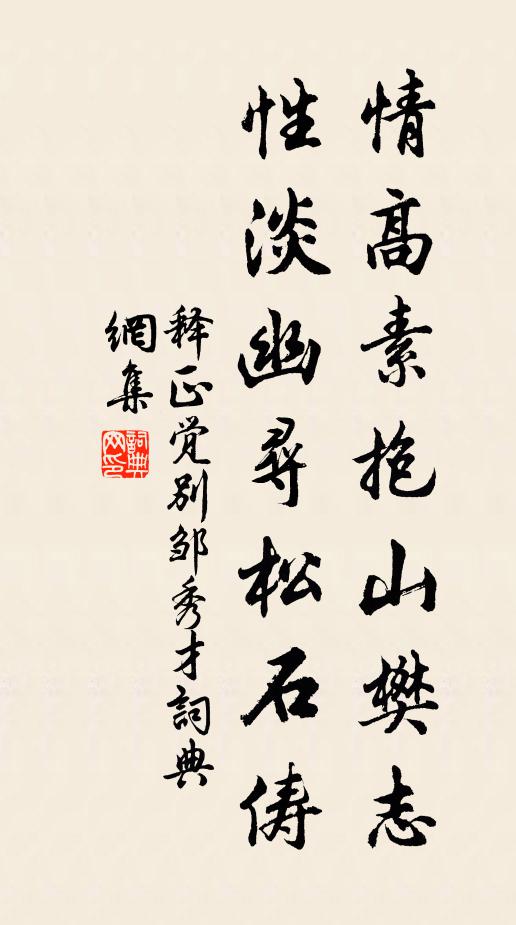 情高素抱山樊志
性淡幽尋松石俦
释正觉别邹秀才詞典
網集
詞典網印